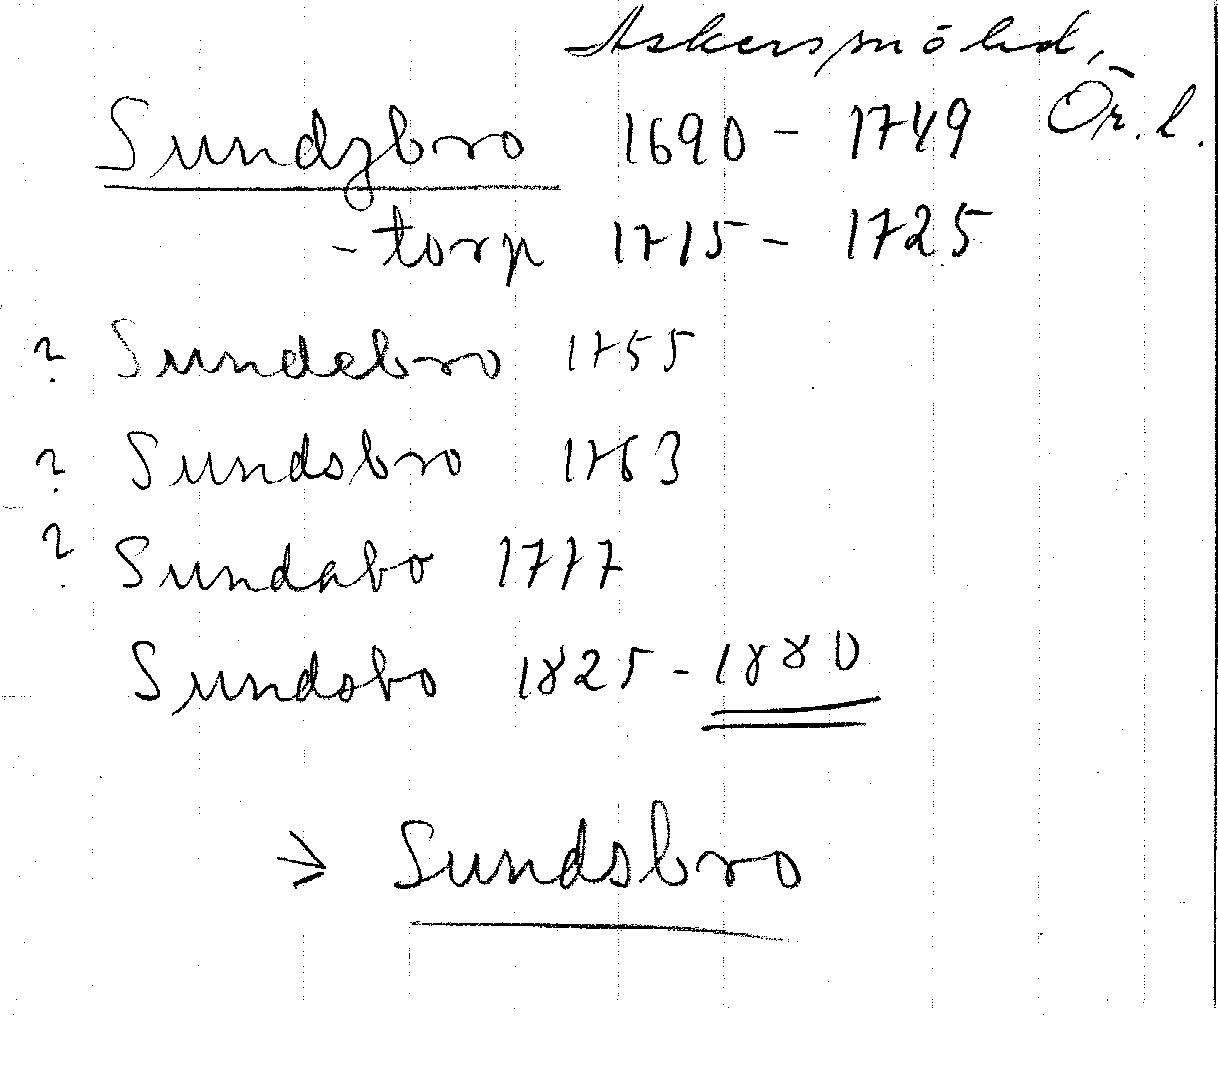 Askers sn o hd,
Sundzbro 1690 - 1749 Ör. l.
-torp 1715 - 1725
? Sundebro 1755
? Sundsbro 1763
? Sundabo 1777
Sundsbo 1825 - 1880
→ Sundsbro